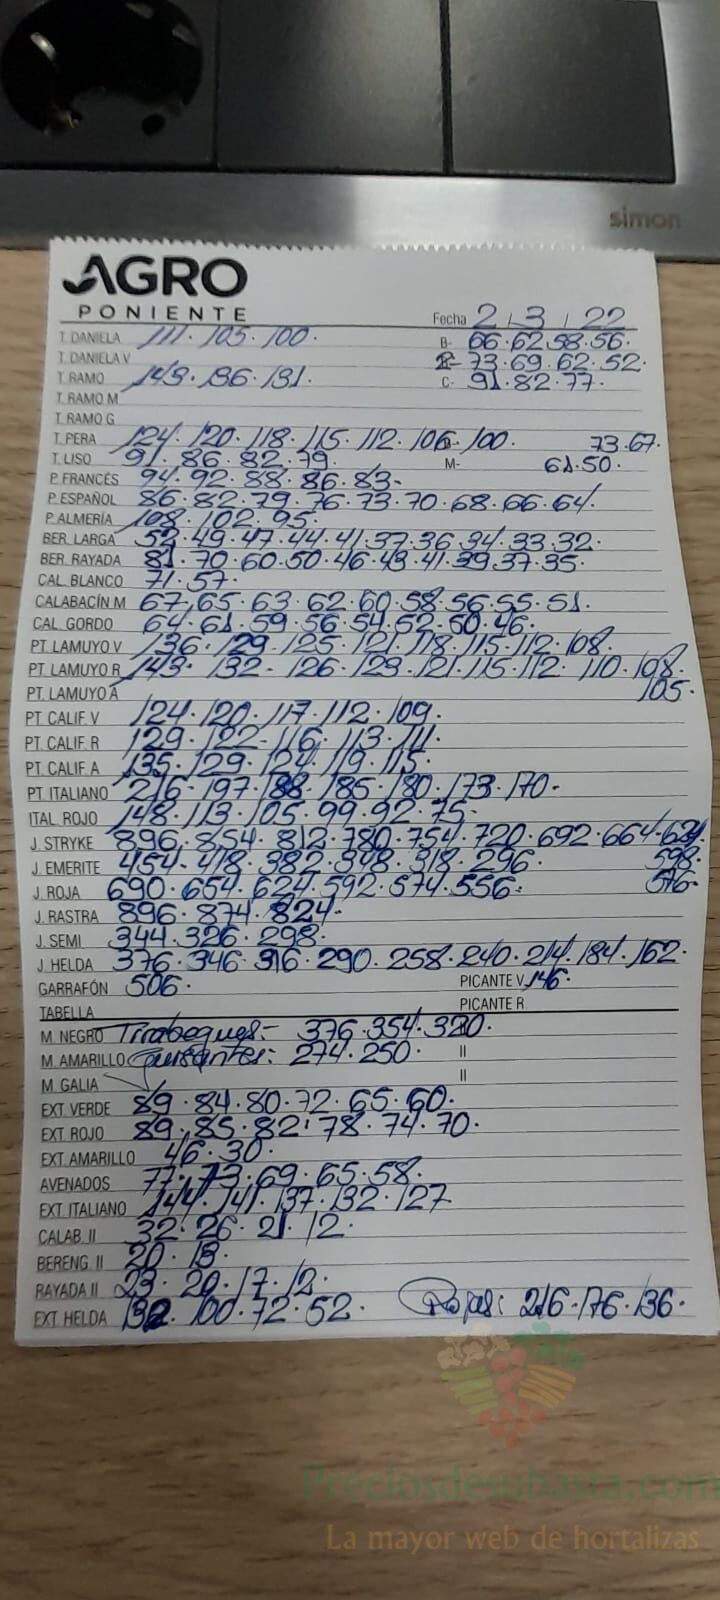 simon
AGRO
PONIENTE
Fecha 2 / 3 / 22
T. DANIELA 111. 105. 100. B- 66.62.58.56.
T. DANIELA V 73.69.62.52.
T. RAMO 149. 136. 131. C- 91.82.77.
T. RAMO M
T. RAMO G
T. PERA 124. 120. 118. 115. 112. 106. 100. 73.67.
T. LISO 91. 86. 82. 79. M- 61.50.
P. FRANCÉS 94.92.88.86.83-
P. ESPAÑOL 86.82.79.76.73.70.68.66.64.
P. ALMERÍA 108. 102.95.
BER. LARGA 52.49.47.44.41.37.36.34.33.32.
BER. RAYADA 81.70.60.50.46.43.41.39.37.35.
CAL. BLANCO 71.57.
CALABACÍN M 67.65.63.62.60.58.56.55.51.
CAL. GORDO 64.61.59.56.54.52.50.46.
PT. LAMUYO V 136. 129. 125. 121. 118. 115. 112. 108.
PT. LAMUYO R 143. 132- 126. 123. 121. 115. 112. 110. 108.
PT. LAMUYO A 105.
PT. CALIF. V 124. 120. 117. 112. 109.
PT. CALIF. R 129. 122- 116. 113. 111.
PT. CALIF. A 135. 129. 124. 119. 115.
PT. ITALIANO 216. 197. 188. 185. 180. 173. 170.
ITAL. ROJO 148. 113. 105. 99. 92. 75.
J. STRYKE 896. 854. 812. 780. 754. 720. 692. 664. 634
J. EMERITE 454. 418. 382. 348. 318. 296. 598.
J. ROJA 690. 654. 624. 592. 574. 556. 576.
J. RASTRA 896. 874. 824.
J. SEMI 344. 326. 298.
J. HELDA 376. 346. 316. 290. 258. 240. 214. 184. 162.
GARRAFÓN 506. PICANTE V 146.
TABELLA PICANTE R
M. NEGRO Tirabeques:- 376.354.320.
M. AMARILLO Guisantes: 274.250. II
M. GALIA II
EXT. VERDE 89. 84. 80. 72. 65. 60.
EXT. ROJO 89. 85. 82. 78. 74. 70.
EXT. AMARILLO 46.30.
AVENADOS 77. 73. 69. 65. 58.
EXT. ITALIANO 144. 141. 137. 132. 127
CALAB. II 32. 26. 21. 12.
BERENG. II 20. 13.
RAYADA II 23. 20. 17. 12.
EXT. HELDA 132. 100. 72. 52. Rojas: 216. 176. 136.
Preciosdesubasta.com
La mayor web de hortalizas